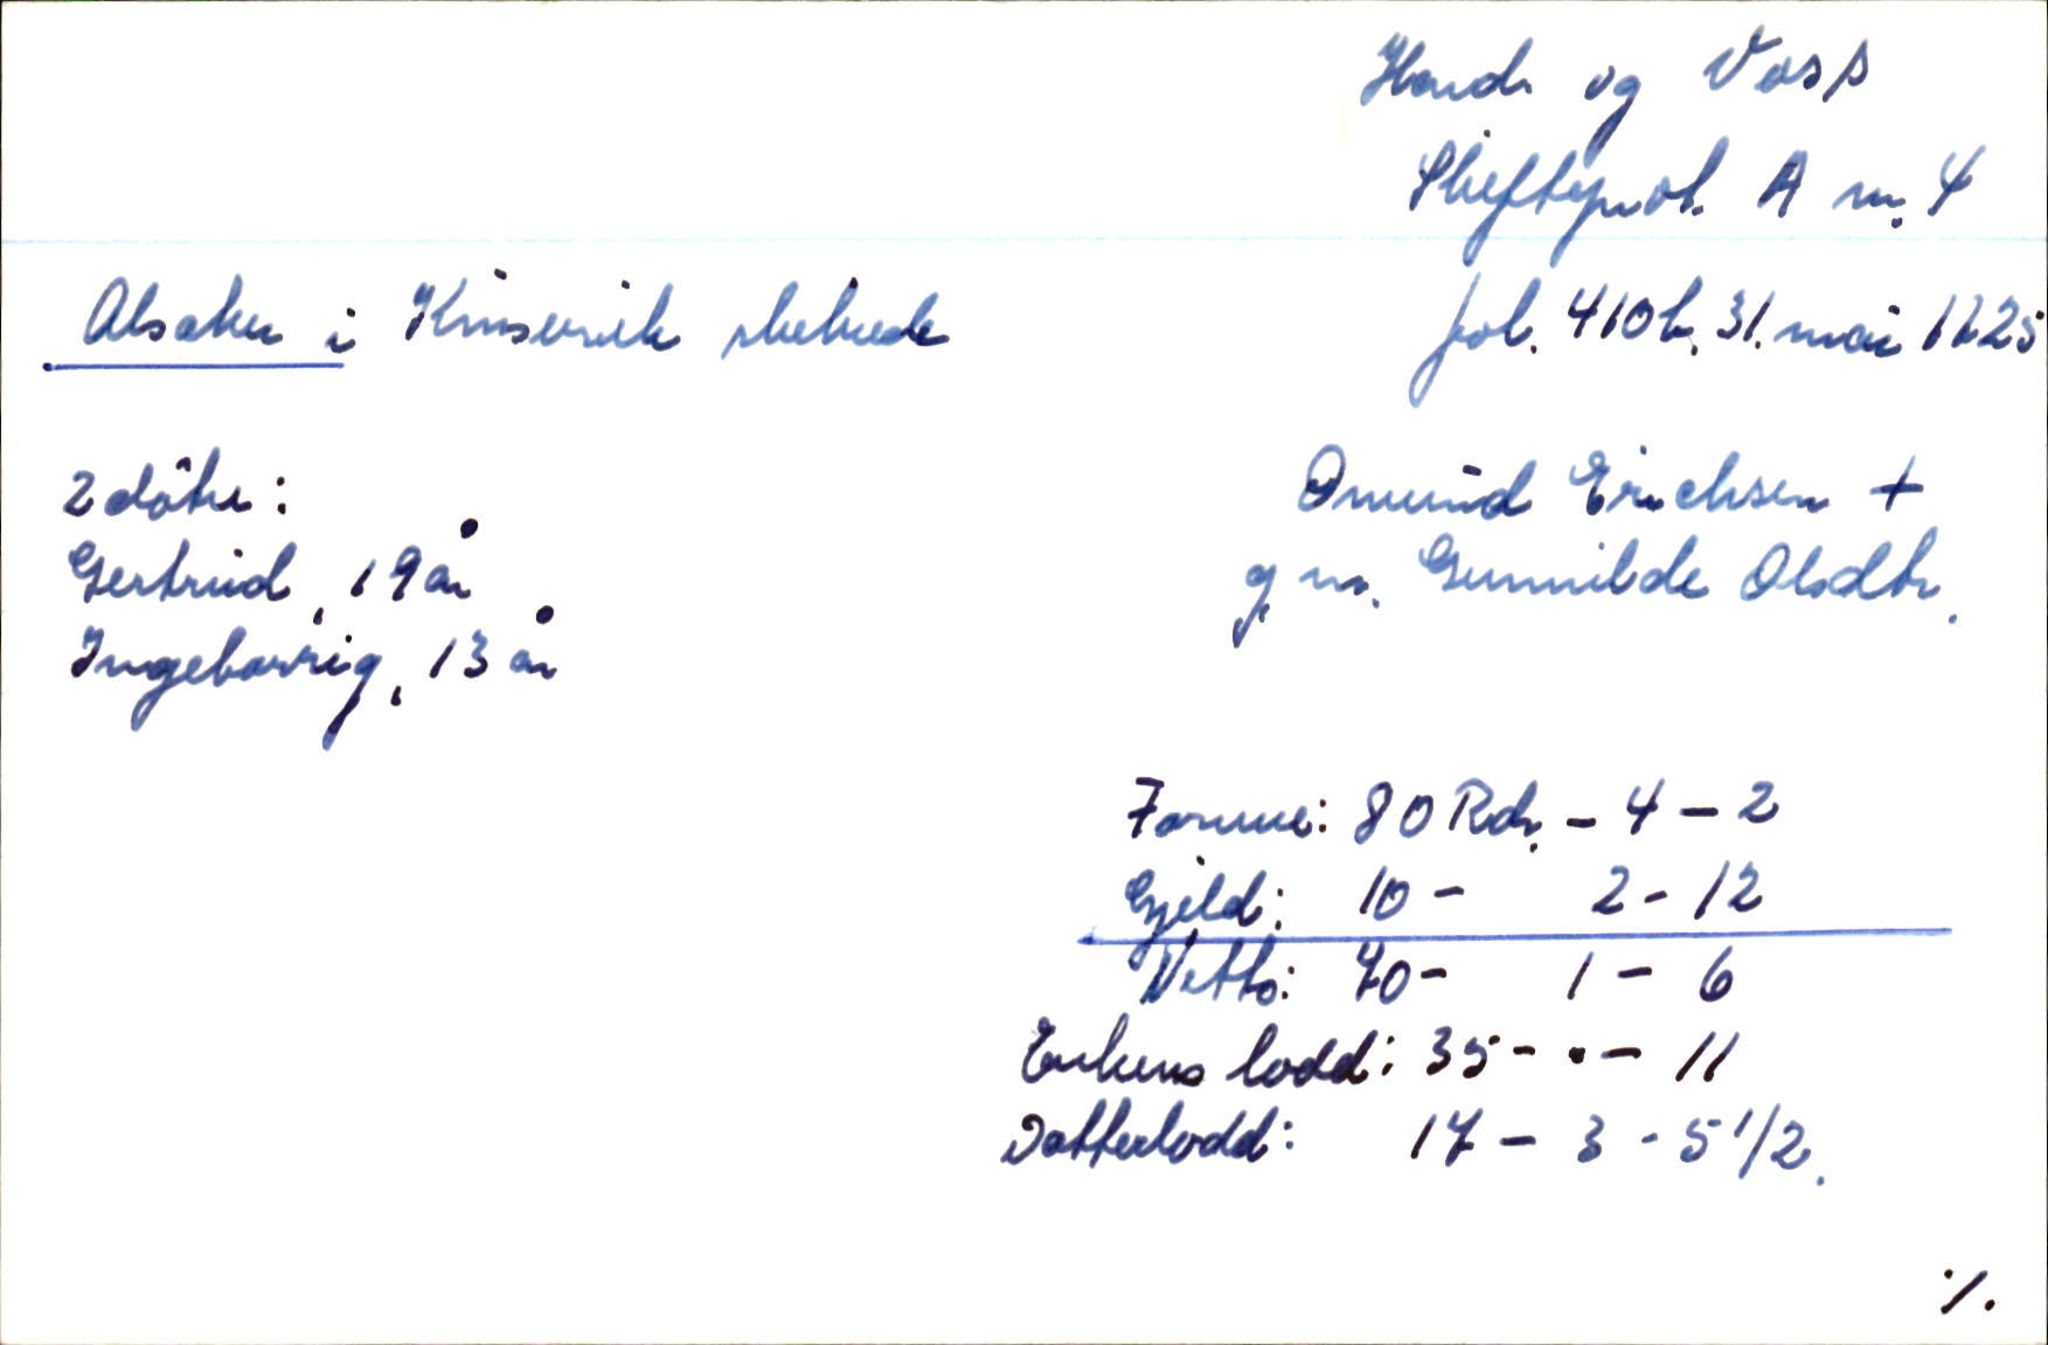 Hard. og Voss
Skifteprot. A nr. 4
Alsaker i Kinservik skibrede
fol. 410b, 31. mai 1725
2 døtre:
Omund Erichsen +
Gertrud, 19 år
g. m. Gunnilde Olsdtr.
Ingeborrig, 13 år
Formue: 80 Rdr. - 4 - 2
Gjeld: 10 - 2 - 12
Netto: 70 - 1 - 6
Enkens lodd: 35 - . - 11
Datterlodd: 17 - 3 - 5 1/2.
./.